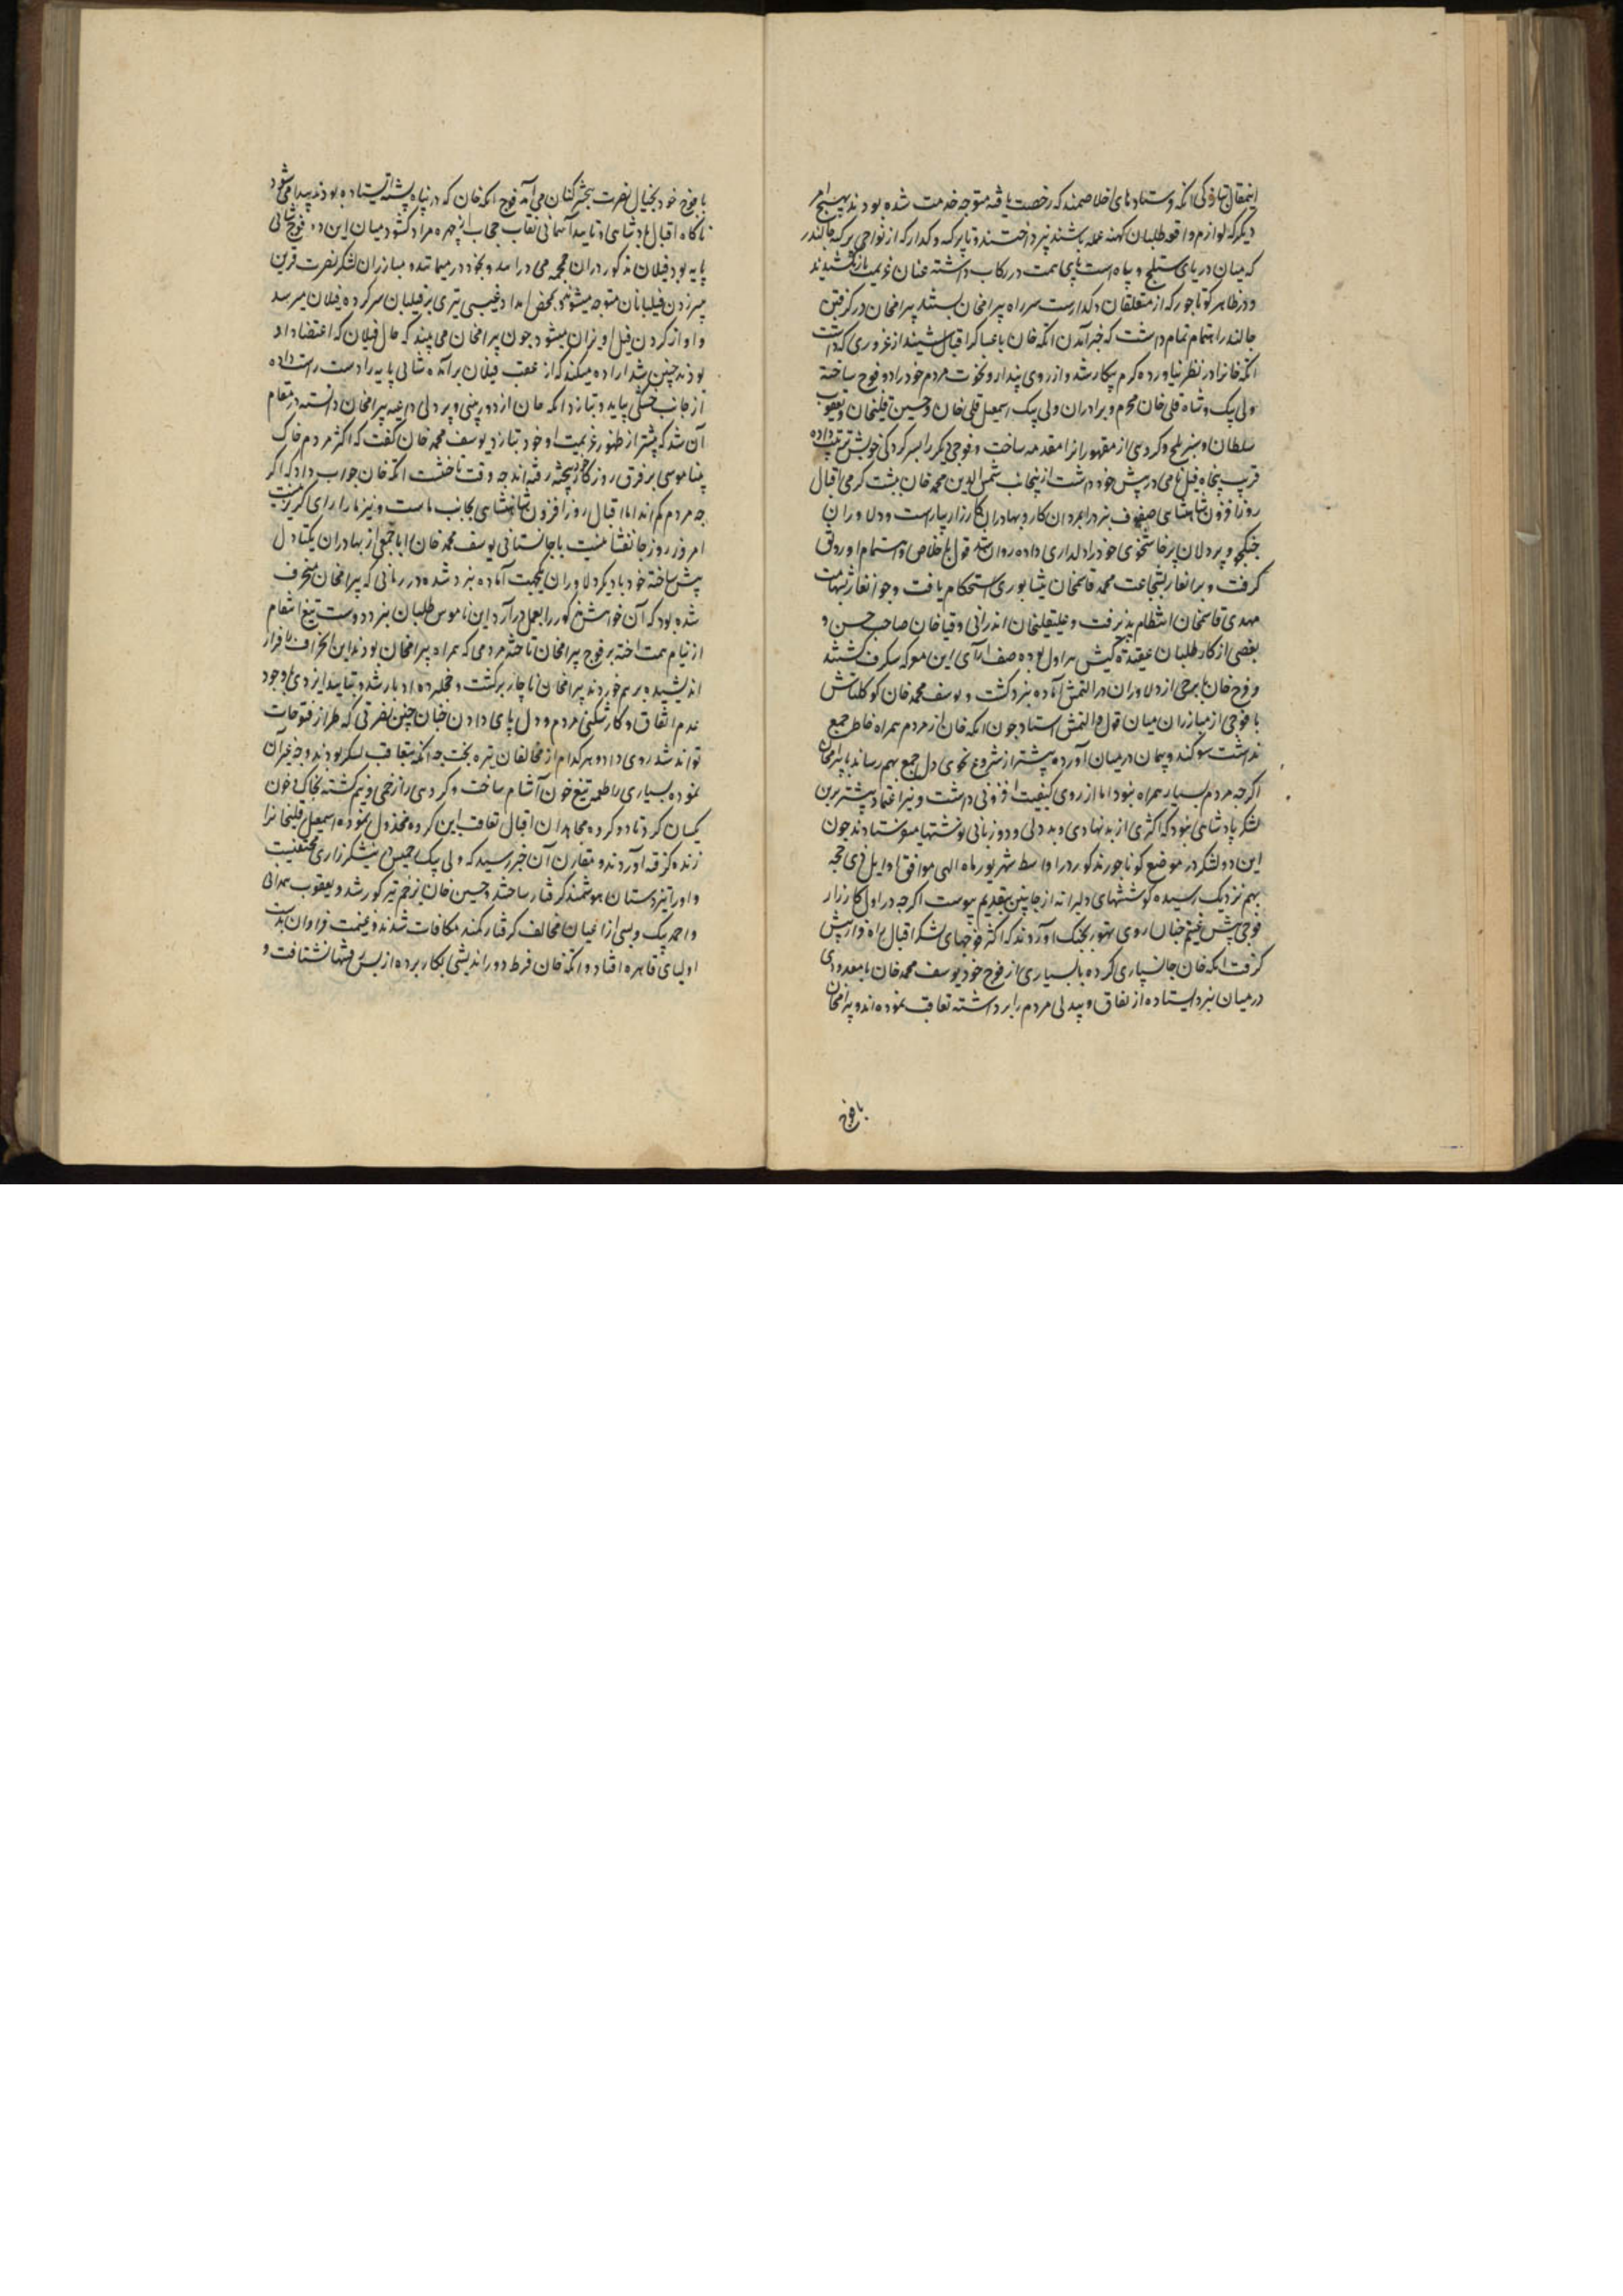 دیکر که لوازم واقعه طلبان کهنه عمله باشند نپرداختند و تا پرکنه دکدار که از نواحی پرکنه جالندر
که میان دریای ستلج و بیاه است پای همت در رکاب داشته عنان عزیمت باز نکشیدند
و در ظاهر کوناجور که از متعلقان دکدار است سر راه پیرامخان بستند پیرامخان در کرفتن
جالندر اهتمام تمام داشت که خبر آمدن اتکه خان با عساکر اقبال شنید از غروری که داشت
اتکه خانرا در نظر نیاورده کرم پیکار شد و از روی پندار و نخوت مردم خود را دو فوج ساخته
ولی بیک و شاه قلی خان محرم و برادران ولی بیک اسمعیل قلی خان و حسین قلیخان و یعقوب
سلطان و سبز تلخ و کروهی از مقهورانرا مقدمه ساخت و فوجی دیکر را بسرکردکی خویش ترتیب داده
قریب پنجاه فیل نامی در پیش خود داشت از ینجانب شمس الدین محمد خان بپشت کرمی اقبال
روزافزون شاهنشاهی صفوف نبرد را بمردان کار و بهادران کارزار بیاراست و دلاوران
جنکجو و پردلان پرخاشخوی خود را دلداری داده روان شد قول باخلاص و اهتمام او رونق
کرفت و برانغار بشجاعت محمد قاسمخان نیشابوری استحکام یافت و جوانغار بشهامت
مهدی قاسمخان انتظام پذیرفت و علیقلیخان اندرابی و قیاخان صاحب حسن و
بعضی از کارطلبان عقیدت کیش هراول بوده صف آرای این معرکه شکرف کشتند
و فرخ خان با برخی از دلاوران در التمش آماده نبرد کشت و یوسف محمد خان کوکلتاش
با فوجی از مبارزان میان قول و التمش استاد چون اتکه خان از مردم همراه خاطر جمع
نداشت سوکند و پیمان در میان آورده پیشتر از شروع نحوی دل جمع بهم رساند با پیرامخان
اکرچه مردم بسیار همراه نبود اما از روی کیفیت افزونی داشت و نیز اعتماد بیشتر برین
لشکر پادشاهی بود که اکثری از بدنهادی و بددلی و دوزبانی نوشتها میفرستادند چون
این دو لشکر در موضع کوناجور مذکور در اواسط شهریور ماه الهی موافق اوایل ذی حجه
بهم نزدیک رسیده کوششهای دلیرانه از جانبین بتقدیم پیوست اکرچه در اول کارزار
فوجی پیش غنیم چنان روی تهور بجنک آوردند که اکثر فوجهای لشکر اقبال راه فرار پیش
کرفت اتکه خان جانسپاری کرده با بسیاری از فوج خود و یوسف محمد خان با معدودی
در میان نبرد ایستاده از نفاق و بیدلی مردم را برداشته تعاقب نموده اند و پیرامخان
با فوج
با فوج خود بخیال نصرت تبختر کنان می آمد فوج اتکه خان که در پناه پشته ایستاده بودند پیدا میشود
ناکاه اقبال پادشاهی و تایید آسمانی نقاب حجاب از چهره مراد کشود میان این دو فوج شالی
پایه بود فیلان مذکور دران جمجمه می درامد و بخود درمیماند و مبارزان لشکر نصرت قرین
بتیر زدن فیلبانان متوجه میشوند بمحض امداد غیبی تیری بر فیلبان سرکرده فیلان میرسد
و او از کردن فیل اویزان میشود چون پیرامخان می بیند که حال فیلان که اعتضاد او
بودند چنین شد اراده میکند که از عقب فیلان برآمده شالی پایه را دست راست داده
از جانب خشکی بیاید و بتازد اتکه خان از دوربینی و پردلی داعیه پیرامخان دانسته در مقام
آن شد که پیشتر از ظهور عزیمت او خود بتازد یوسف محمد خان کفت که اکثر مردم خاک
بیناموسی بر فرق روزکار خود بیخته رفته اند چه وقت تاختست اتکه خان جواب داد که اکر
چه مردم کم اند اما اقبال روزافزون شاهنشاهی بجانب ماست و نیز ما را رای کریز نیست
امروز روز جانفشانیست یا جانستانی یوسف محمد خان را با جمعی از بهادران یکتادل
پیش ساخته خود با دیکر دلاوران یکجهت آماده نبرد شده در زمانی که پیرامخان منحرف
شده بود که آن خواهش مذکور را بعمل درآرد این ناموس طلبان نبرد دوست تیغ انتقام
از نیام همت آخته بر فوج پیرامخان تاخته مردمی که همراه پیرامخان بودند این انحراف را فرار
اندیشیده بر هم خوردند پیرامخان ناچار برکشت و خجلت زده ادبار شد و بتایید ایزدی با وجود
عدم اتفاق و کارشکنی مردم و دل پای دادن خان چنین نصرتی که طراز فتوحات
تواند شد روی داد و هر کدام از مخالفان تیره بخت چه آنکه متعاقب لشکر بودند و چه غیر آن
نموده بسیاری را طعمه تیغ خون آشام ساخت و کروهی را زخمی و نیم کشته بخاک و خون
یکسان کرد تا دو کروه مجاهدان اقبال تعاقب این کروه مخذول نموده اسمعیل قلیخانرا
زنده کرفته آوردند و مقارن آن خبر رسید که ولی بیک زخمی در نیشکرزاری مختفیست
و او را نیز دستان هوشمند کرفتار ساختند و حسین خان بزخم تیر کور شد و یعقوب همدانی
و احمد بیک و بسی از اعیان مخالف کرفتار کمند مکافات شدند و غنیمت فراوان بدست
اولیای قاهره افتاد و اتکه خان فرط دوراندیشی بکار برده از پس رفتها نشتافت و